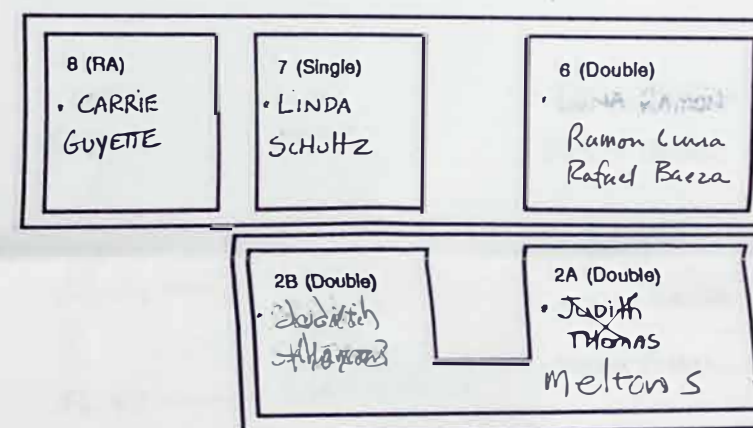 8 (RA)
• CARRIE
GUYETTE
7 (Single)
• LINDA
SCHULTZ
6 (Double)
•
Ramon Luna
Rafael Baeza
2B (Double)
• Judith
2A (Double)
• JUDITH
THOMAS
Meltons